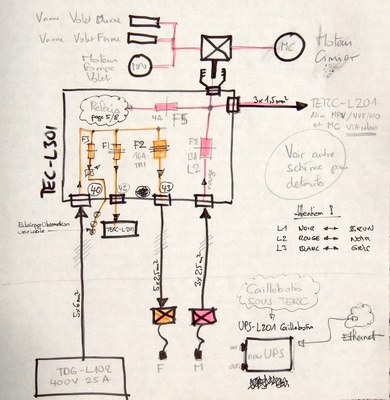 Vanne Volet Ouvre
Vanne Volet Ferme
Moteur
Pompe
Volet
MPV
MC
Moteur
Cimier
TEC-L301
Relais
page 5/8
4A
F5
3x1,5mm²
TERC-L201
VIA relais
F3
F1
F2
16A
TRI
L2
rouge
Voir autre
schéma pour
détails
40
42
43
variable
TERC-L201
5x6mm²
5x2.5mm²
3x2.5mm²
Attention !
L1 NOIR BRUN
L2 ROUGE NOIR
L3 BLANC GRIS
Caillebotis
SOUS TERC
UPS-L201 Caillebotis
new UPS
Ethernet
TDG-L102
400V 25A
F
M